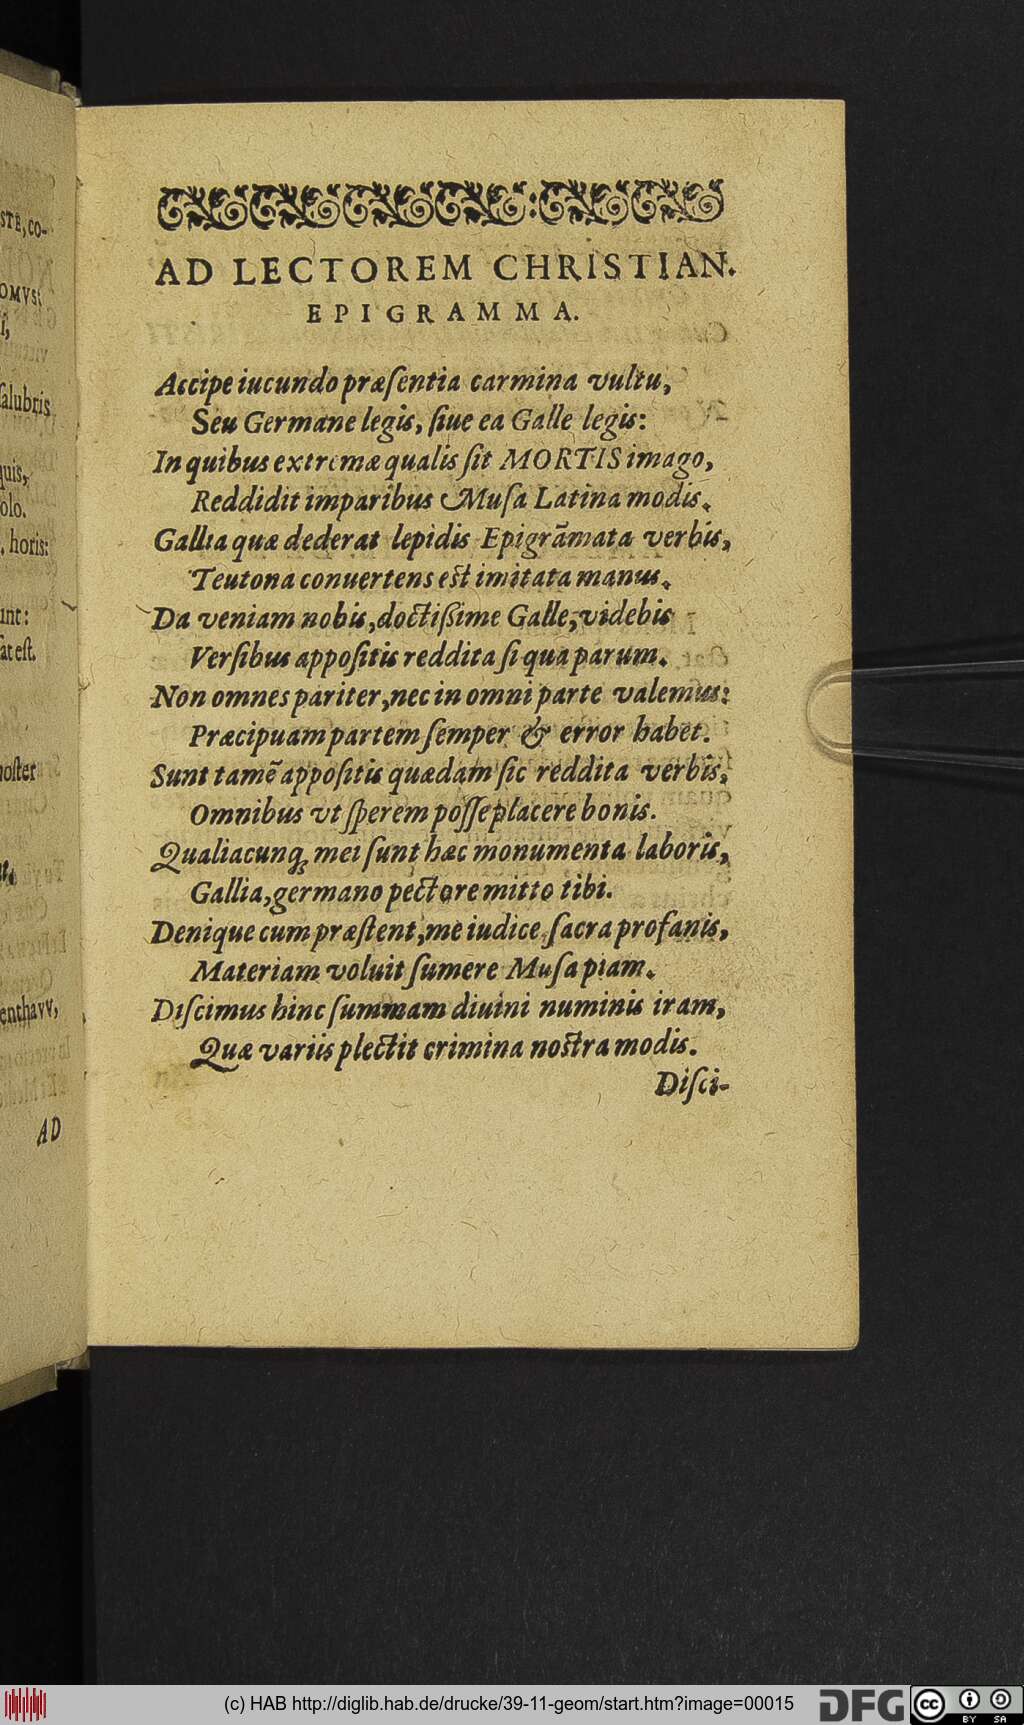 STE, CO-
OMVS:
i,
salubris
quis,
olo.
, horis:
unt:
ſat eſt.
noſter
enthavv,
AD
AD LECTOREM CHRISTIAN.
EPIGRAMMA.
Accipe iucundo præſentia carmina vultu,
Seu Germane legis, ſiue ea Galle legis:
In quibus extremæ qualis ſit MORTIS imago,
Reddidit imparibus Muſa Latina modis.
Gallia quæ dederat lepidis Epigrãmata verbis,
Teutona conuertens eſt imitata manus.
Da veniam nobis, doctiſſime Galle, videbis
Verſibus appoſitis reddita ſi qua parum.
Non omnes pariter, nec in omni parte valemus:
Præcipuam partem ſemper & error habet.
Sunt tamẽ appoſitis quædam ſic reddita verbis,
Omnibus vt ſperem poſſe placere bonis.
Qualiacunq; mei ſunt hæc monumenta laboris,
Gallia, germano pectore mitto tibi.
Denique cum præſtent, me iudice, ſacra profanis,
Materiam voluit ſumere Muſa piam.
Diſcimus hinc ſummam diuini numinis iram,
Quæ variis plectit crimina noſtra modis.
Diſci-
(c) HAB http://diglib.hab.de/drucke/39-11-geom/start.htm?image=00015
DFG
cc
BY SA